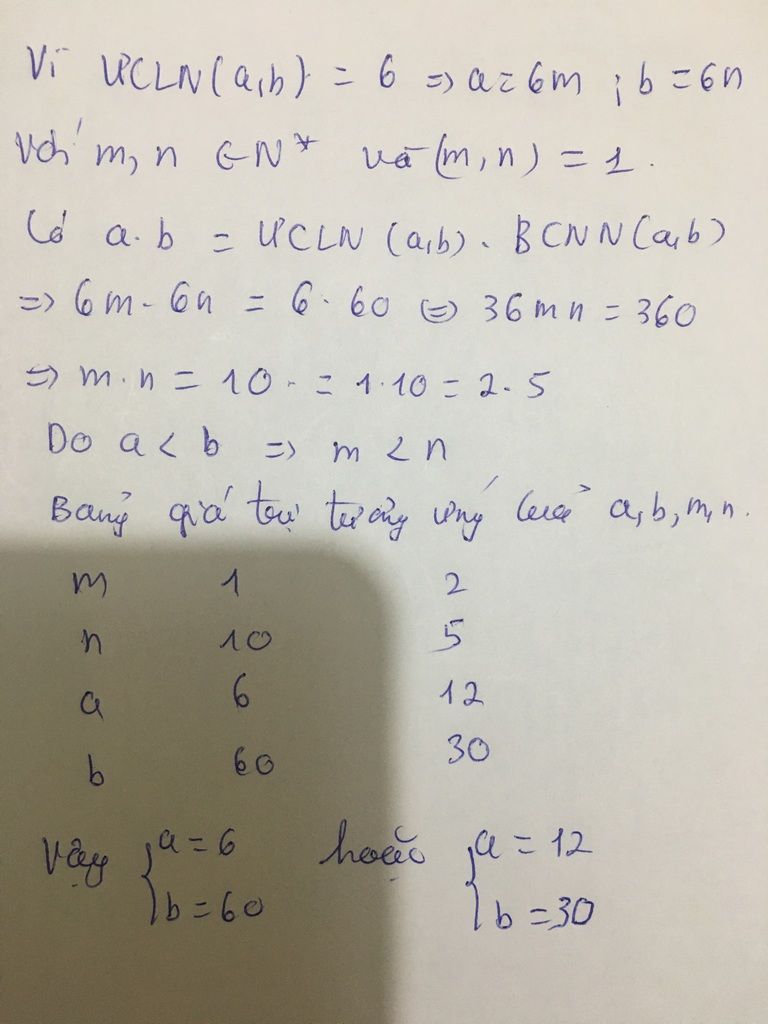 Vì ƯCLN(a,b) = 6 => a = 6m ; b = 6n
với m, n ∈ N* và (m, n) = 1.
Có a.b = ƯCLN (a,b). BCNN(a,b)
=> 6m.6n = 6.60 <=> 36mn = 360
=> m.n = 10. = 1.10 = 2.5
Do a < b => m < n
Bảng giá trị tương ứng của a, b, m, n.
m 1 2
n 10 5
a 6 12
b 60 30
Vậy { a = 6 hoặc { a = 12
b = 60 b = 30